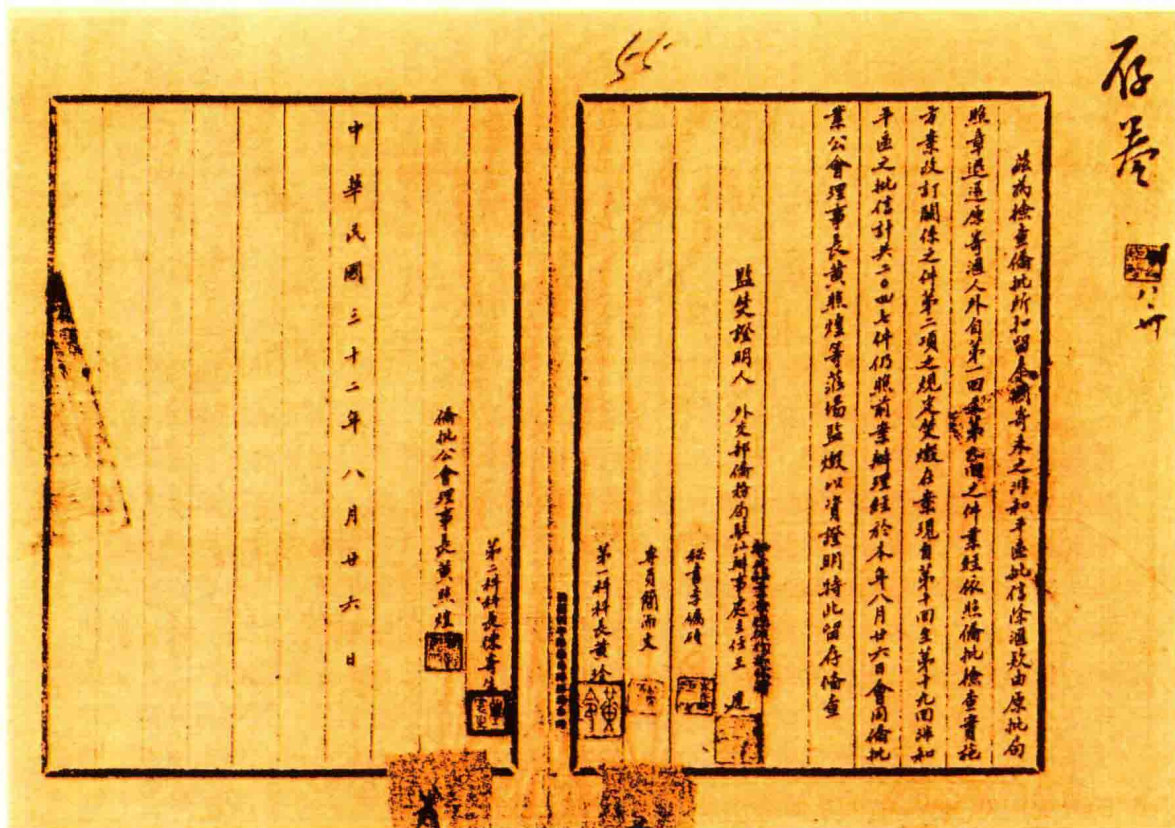 存卷
八、卅
55
茲為檢查僑批所扣留泰國寄來之非和平區批信除滙款由原批局
照章退還原寄滙人外自第一回至第九回之件業經依照僑批檢查實施
方案改訂關係之件第二項之規定焚燬在案現自第十回至第十九回非和
平區之批信計共二〇四七件仍照前案辦理經於本年八月廿六日會同僑批
業公會理事長黃照煌等蒞場監燬以資證明特此留存俻查
監焚證明人 外交部僑務局駐汕辦事處主任王
秘書李
專員簡而文
第一科科長黃
第二科科長陳
僑批公會理事長黃照煌
中華民國三十二年八月廿六日